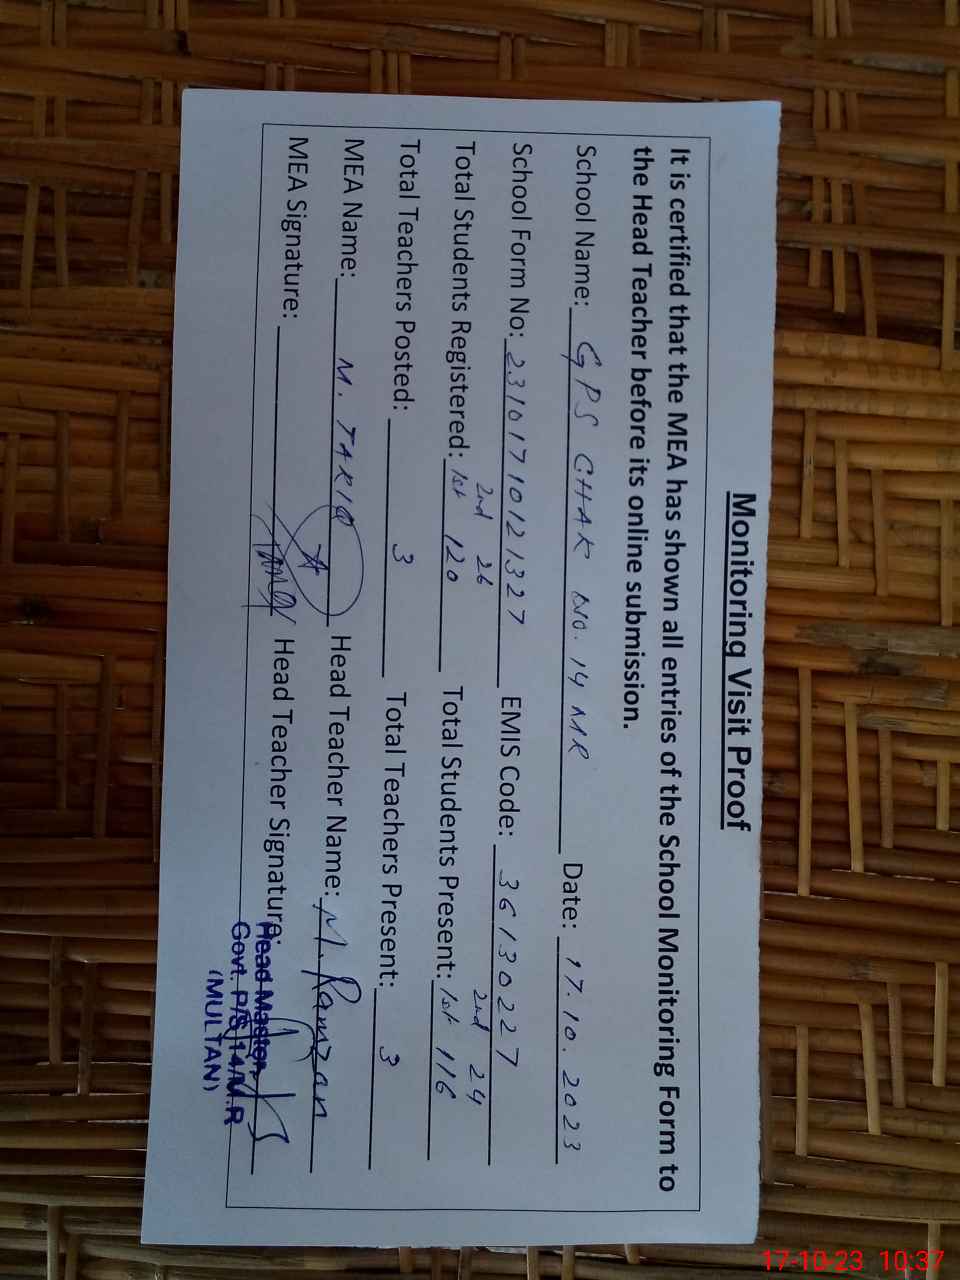 Monitoring Visit Proof
It is certified that the MEA has shown all entries of the School Monitoring Form to
the Head Teacher before its online submission.
School Name: GPS CHAK NO. 14 MR Date: 17.10.2023
School Form No: 23101710121327 EMIS Code: 36130227
2nd 26 2nd 24
Total Students Registered: 1st 120 Total Students Present: 1st 116
Total Teachers Posted: 3 Total Teachers Present: 3
MEA Name: M. TARIQ Head Teacher Name: M. Ramzan
MEA Signature: Head Teacher Signature:
Head Master
Govt. P/S 14/M.R
(MULTAN)
17-10-23 10:37